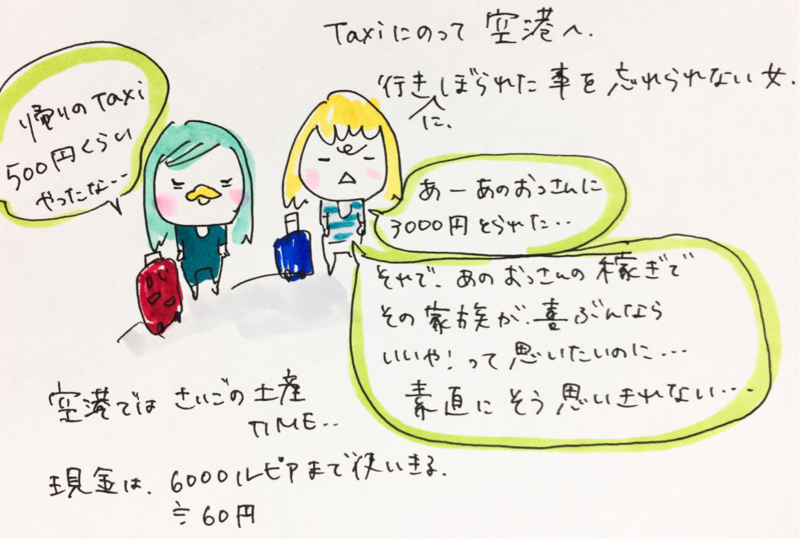 Taxiにのって 空港へ.
行きしぼられた事を忘れられない女.
に.
帰りのTaxi
500円くらい
やったな・・
あーあのおっさんに
3000円とられた・・
それで、あのおっさんの稼ぎで
その家族が、喜ぶんなら
いいや！って思いたいのに・・・
素直にそう思いきれない・・・
空港では さいごの土産
TIME・・
現金は、6000ルピアまで使いきる.
≒60円